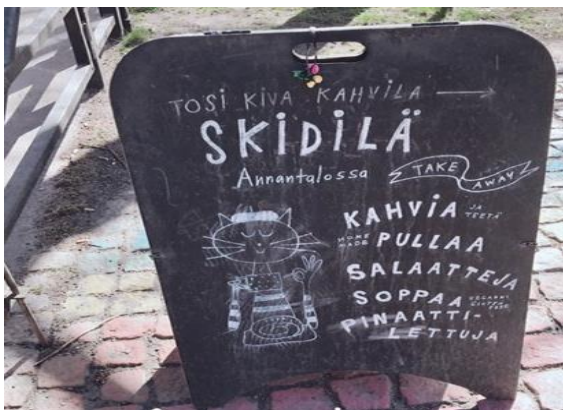 TOSI KIVA KAHVILA
SKIDILÄ
Annantalossa
TAKE AWAY
KAHVIA JA TEETÄ
HOME MADE PULLAA
SALAATTEJA
SOPPAA
PINAATTI-
LETTUJA